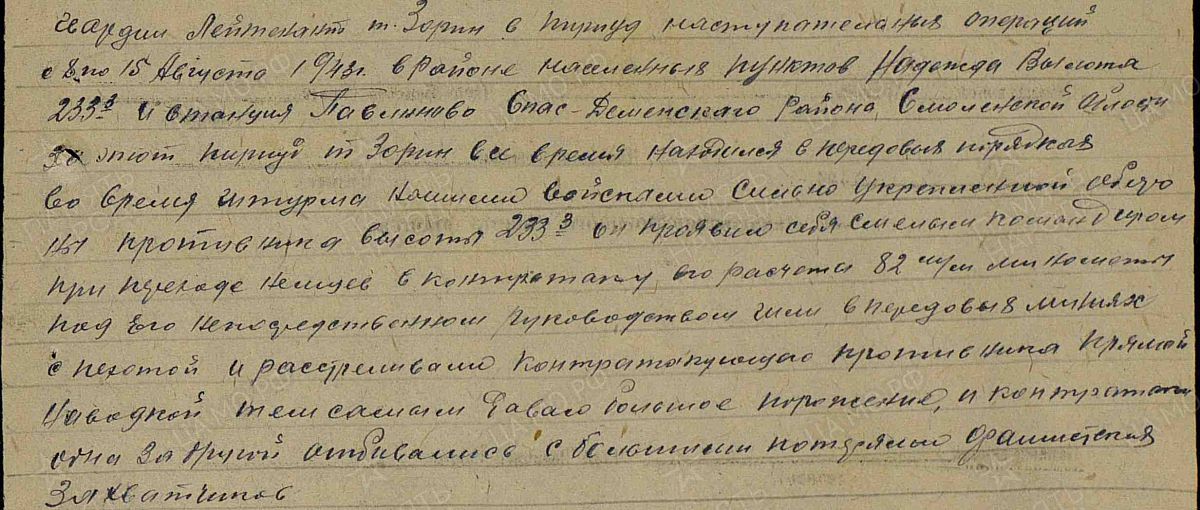 Гвардии Лейтенант т. Зорин в период наступательных операций
с 8 по 15 Августа 1943 г. в районе населенных пунктов Надежда Высота
233³ и станция Павлиново Спас-Деменскаго района, Смоленской области
За этот период т Зорин все время находился в передовых порядках
во время штурма нашими войсками сильно укрепленной оборо
ны противника высоты 233³ он проявил себя смелым командиром
при переходе немцев в контратаку, его расчеты 82 м/м минометы
под его непосредственном руководством были в передовых линиях
с пехотой и расстреливали контратакующаго противника прямой
наводкой тем самым давало большое поражение, и контратаки
одна за другой отбивались с большими потерями фашистских
захватчиков